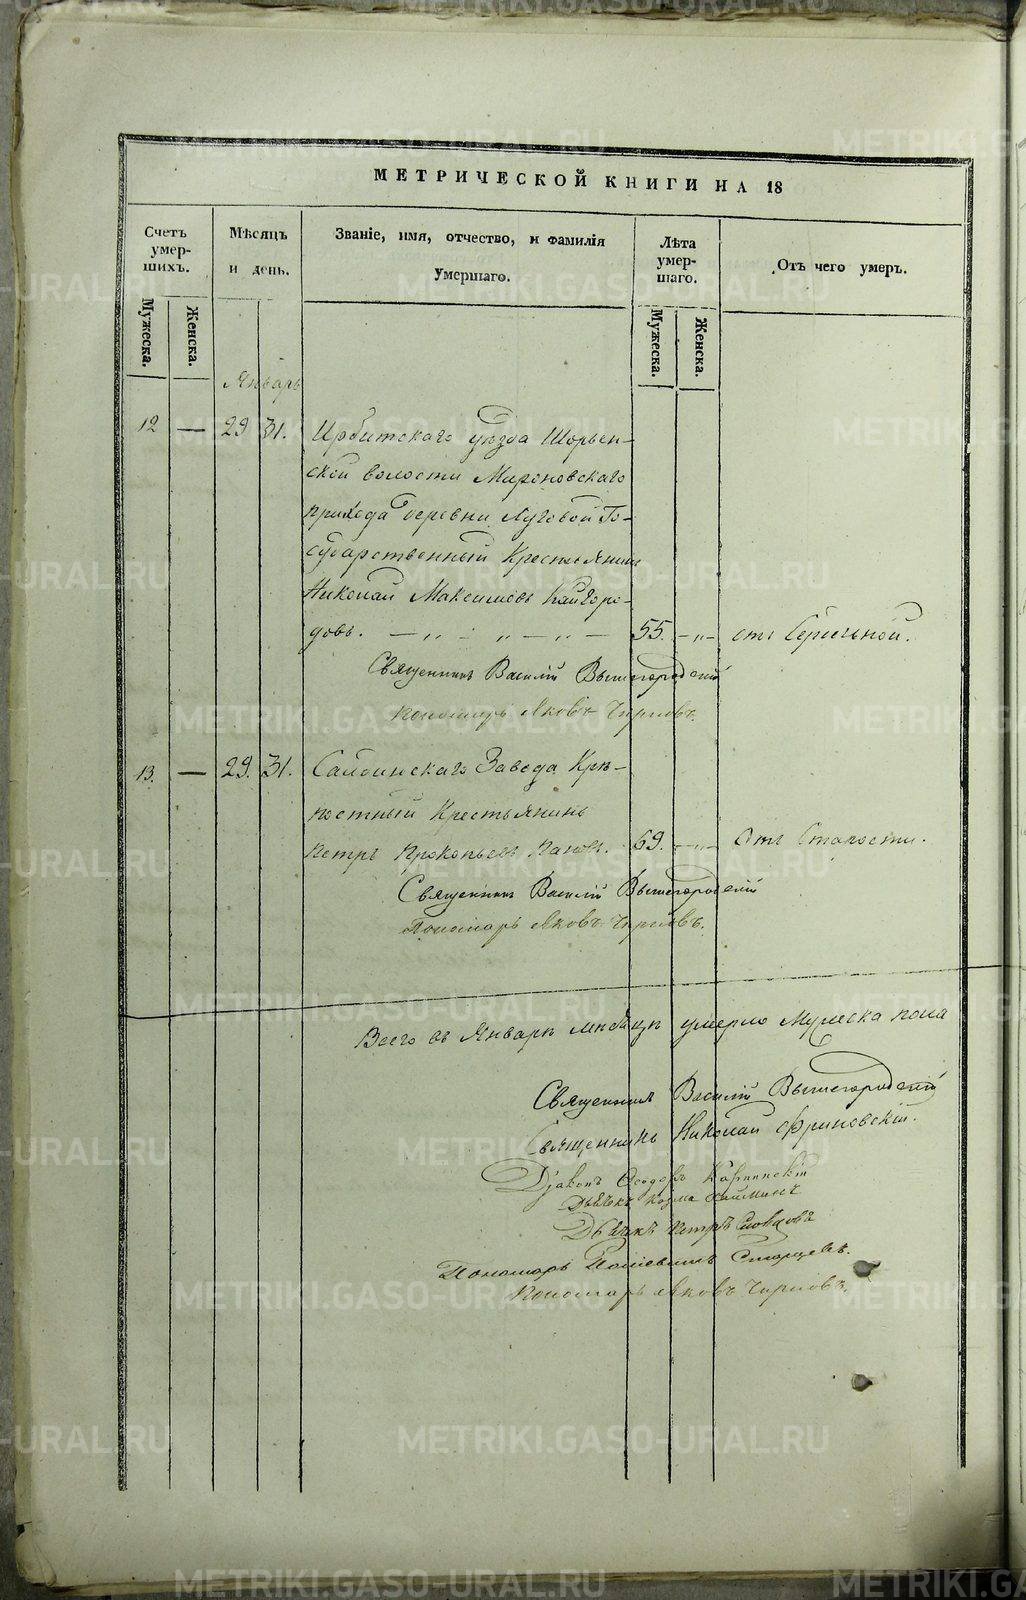 МЕТРИЧЕСКОЙ КНИГИ НА 18
Счетъ умер-шихъ.
Мѣсяцъ и день.
Званіе, имя, отчество, и фамилія Умершаго.
Лѣта умер-шаго.
Отъ чего умеръ.
Мужеска.
Женска.
Мужеска.
Женска.
Январь
12 — 29 31. Ирбитскаго уѣзда Шорьен-
ской волости Мироновскаго
прихода деревни Луговой Го-
сударственный Крестьянинъ
Николай Максимовъ Кайгоро-
довъ. — „ — „ — „ — 55. — „ — отъ Горячьной.
Священникъ Василій Вышегородскій
Пономарь Яковъ Чирковъ.
13. — 29. 31. Салдинскаго Завода Крѣ-
постный Крестьянинъ
Петръ Прокопьевъ 69. — „ — Отъ Старости.
Священникъ Василій Вышегородскій
Пономарь Яковъ Чирковъ.
Всего въ Январѣ мѣсяцѣ умерло Мужеска пола
Священникъ Василій Вышегородскій
Священникъ Николай Фриновскій.
Діаконъ Ѳеодоръ
Дьячекъ Козма
Дьячекъ Петръ Словцовъ
Пономарь Старцевъ.
Пономарь Яковъ Чирковъ.
METRIKI.GASO-URAL.RU